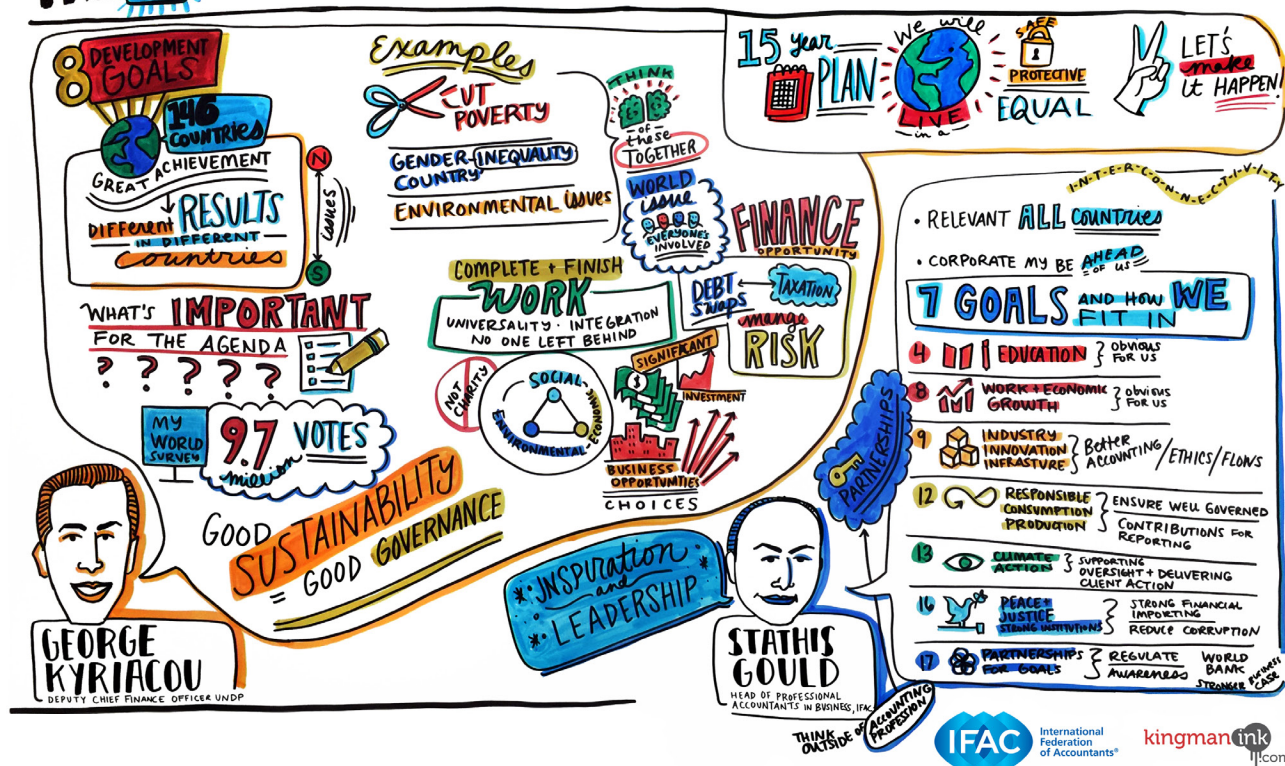 8 DEVELOPMENT
GOALS
146
COUNTRIES
GREAT ACHIEVEMENT
DIFFERENT RESULTS
IN DIFFERENT
COUNTRIES
N
ISSUES
S
WHAT'S IMPORTANT
FOR THE AGENDA
? ? ? ? ?
MY
WORLD
SURVEY
9.7 VOTES
million
GOOD
SUSTAINABILITY
= GOOD GOVERNANCE
GEORGE
KYRIACOU
DEPUTY CHIEF FINANCE OFFICER UNDP
Examples
CUT
POVERTY
GENDER-INEQUALITY
COUNTRY
ENVIRONMENTAL issues
THINK
of
these
TOGETHER
WORLD
issue
EVERYONE'S
INVOLVED
COMPLETE + FINISH
WORK
UNIVERSALITY · INTEGRATION
NO ONE LEFT BEHIND
NOT
CHARITY
SOCIAL
ENVIRONMENTAL
ECONOMIC
FINANCE
OPPORTUNITY
DEBT
SWAPS
TAXATION
mange
RISK
SIGNIFICANT
$
INVESTMENT
BUSINESS
OPPORTUNITIES
CHOICES
INSPIRATION
and
LEADERSHIP
STATHIS
GOULD
HEAD OF PROFESSIONAL
ACCOUNTANTS IN BUSINESS, IFAC
THINK
OUTSIDE OF
ACCOUNTING
PROFESSION
15 year
PLAN
We will
LIVE
in a
SAFE
PROTECTIVE
EQUAL
LET'S
make
it HAPPEN!
I-N-T-E-R-C-O-N-N-E-C-T-I-V-I-T-Y
• RELEVANT ALL COUNTRIES
• CORPORATE MY BE AHEAD
OF US
7 GOALS AND HOW WE
FIT IN
PARTNERSHIPS
4 EDUCATION } OBVIOUS
FOR US
8 WORK + ECONOMIC
GROWTH } OBVIOUS
FOR US
9 INDUSTRY
INNOVATION
INFRASTURE } Better
ACCOUNTING/ETHICS/FLOWS
12 RESPONSIBLE
CONSUMPTION
PRODUCTION } ENSURE WELL GOVERNED
CONTRIBUTIONS FOR
REPORTING
13 CLIMATE
ACTION } SUPPORTING
OVERSIGHT + DELIVERING
CLIENT ACTION
16 PEACE +
JUSTICE
STRONG INSTITUTIONS } STRONG FINANCIAL
IMPORTING
REDUCE CORRUPTION
17 PARTNERSHIPS
FOR GOALS } REGULATE
AWARENESS
WORLD
BANK
STRONGER BUSINESS
CASE
IFAC
International
Federation
of Accountants®
kingmanink
.com